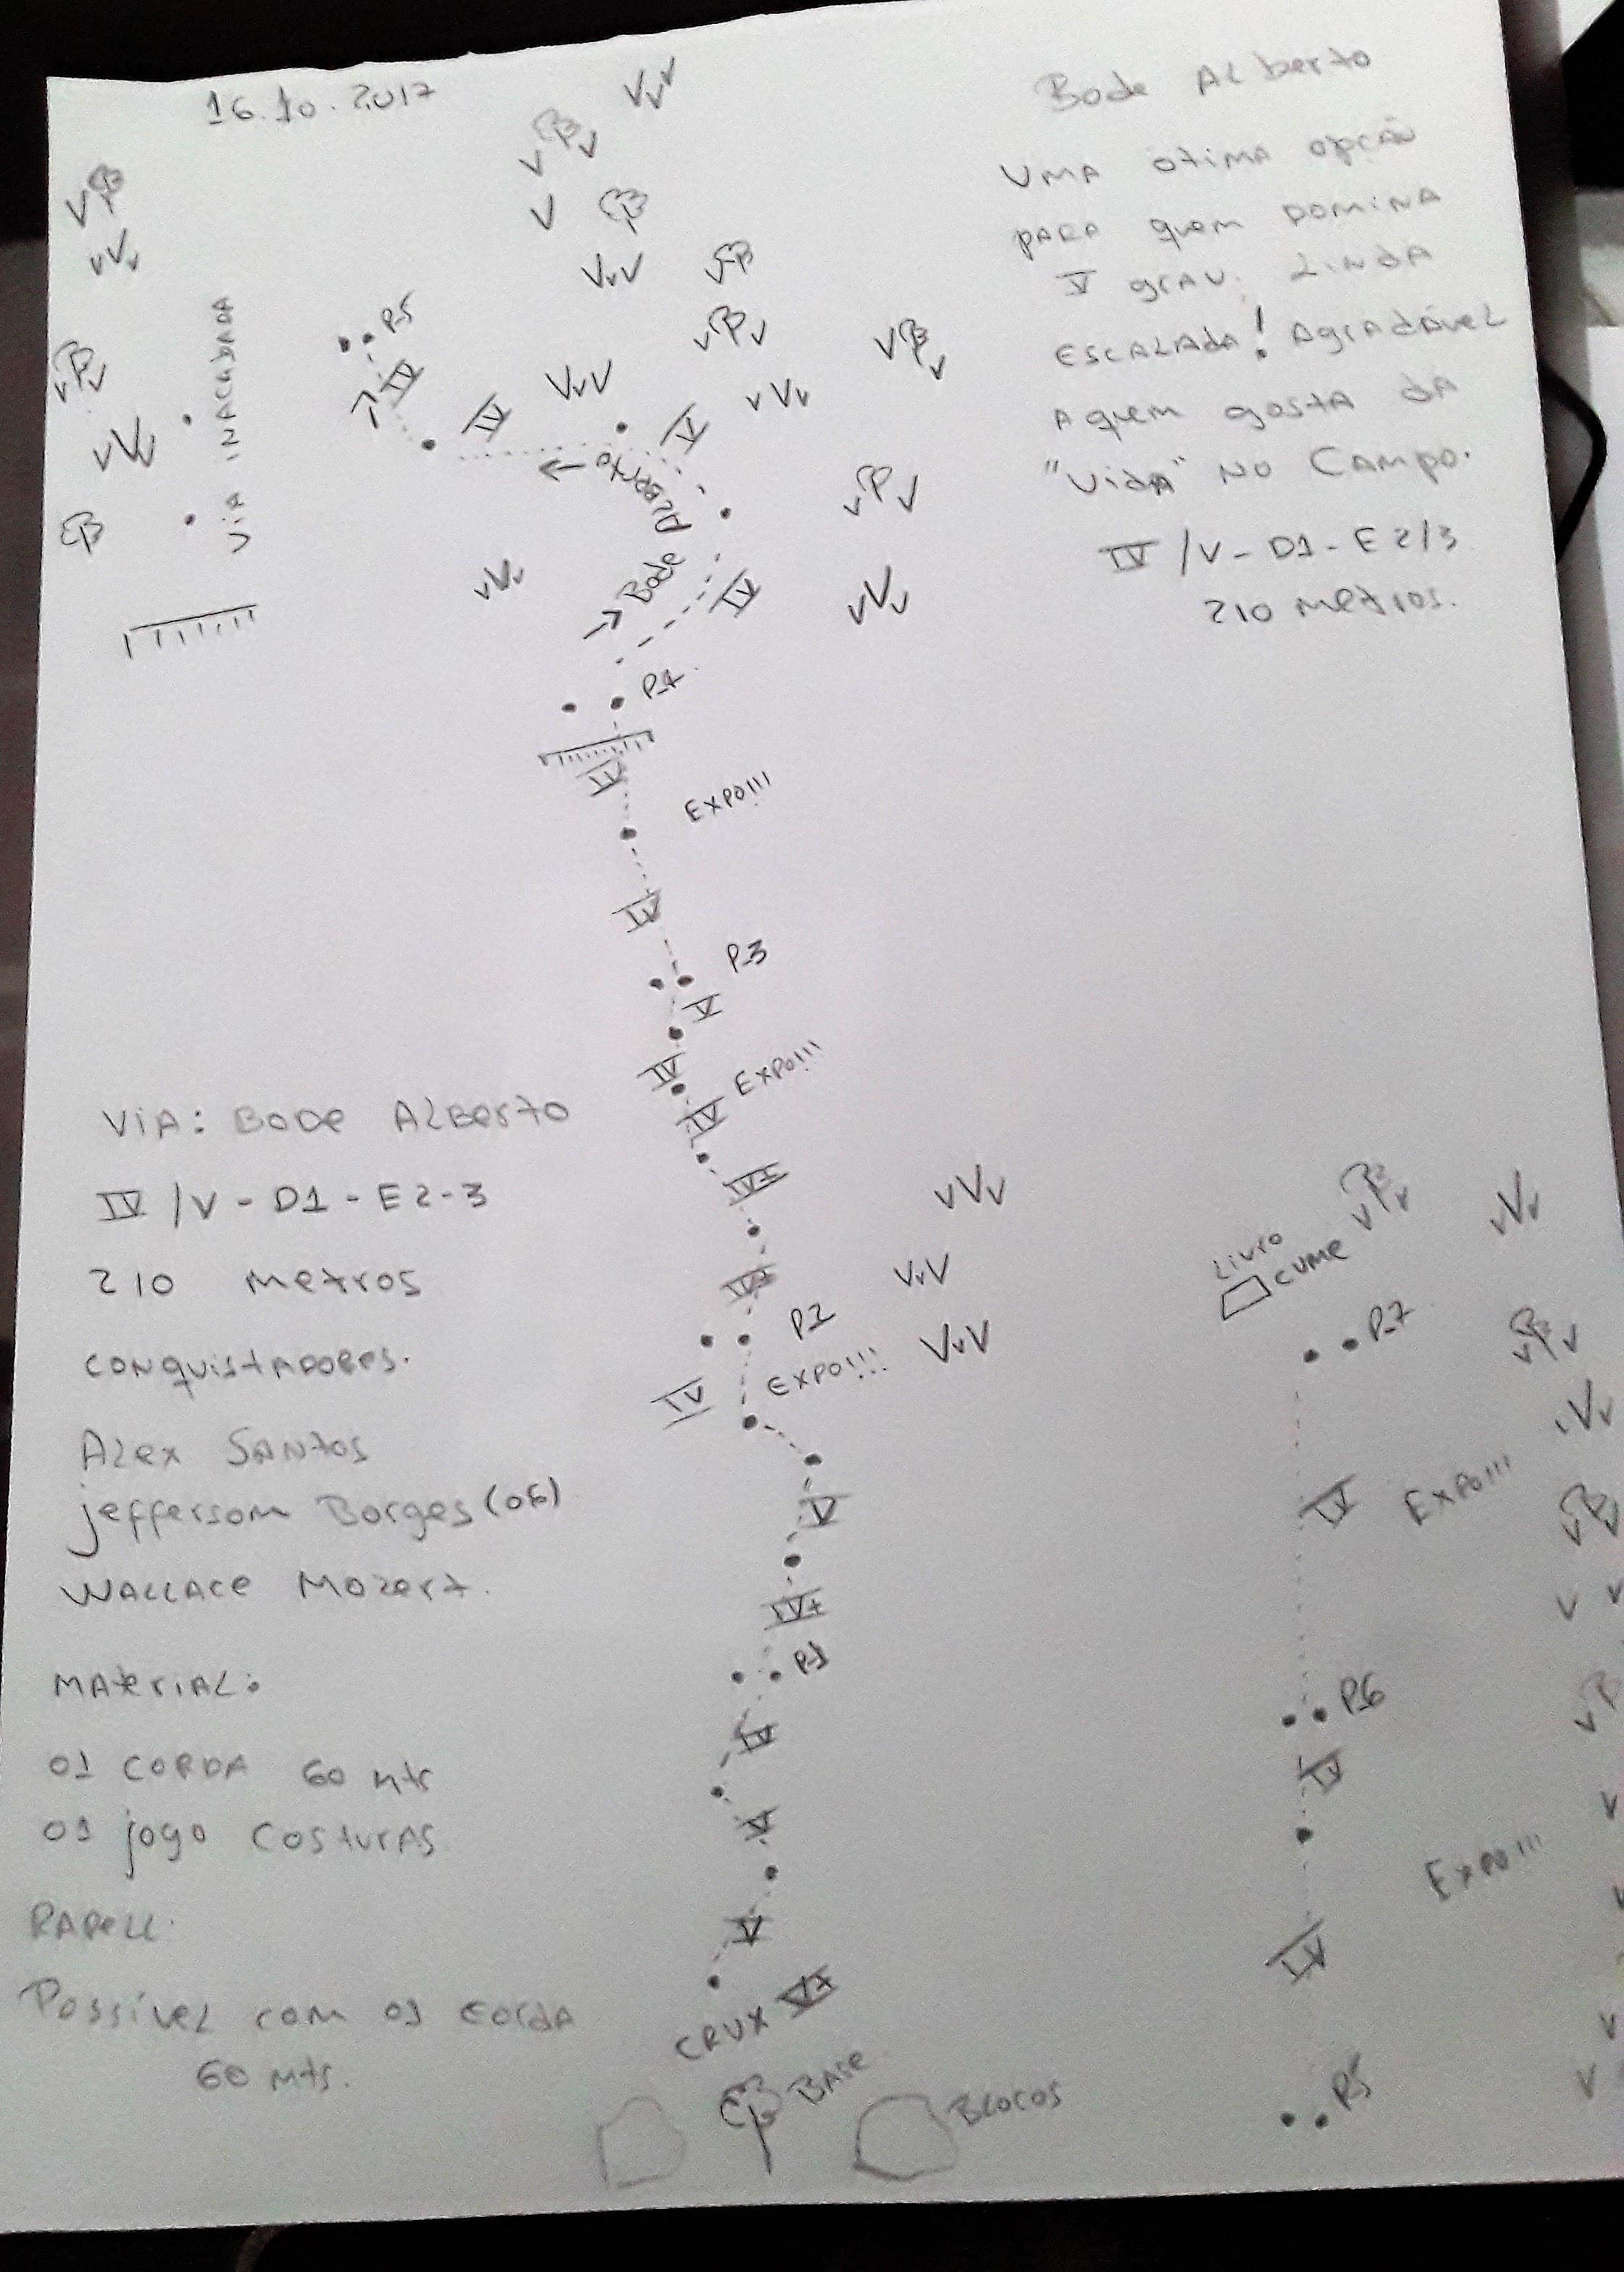 16.10.2017
Bode Alberto
Uma otima opção
para quem domina
V grau. Linda
escalada! Agradável
a quem gosta da
"vida" no campo.
IV/V - D1 - E2/3
210 metros.
Via inacabada
P-5
IV
IV
V
Bode Alberto
IV
P-4
IV
EXPO!!!
IV
P-3
V
IV
EXPO!!!
IV
IV+
P2
EXPO!!!
IV
V
IV+
P-1
IV
V
V
CRUX V+
Base
Blocos
Via: Bode Alberto
IV/V - D1 - E2-3
210 metros
Conquistadores.
Alex Santos
Jeffersom Borges (06)
Wallace Mozert.
Material:
01 corda 60 mtr
01 jogo costuras
Rapell.
Possível com 01 corda
60 mts.
Livro
Cume
P-7
IV
EXPO!!!
P-6
IV
EXPO!!!
IV
P-5